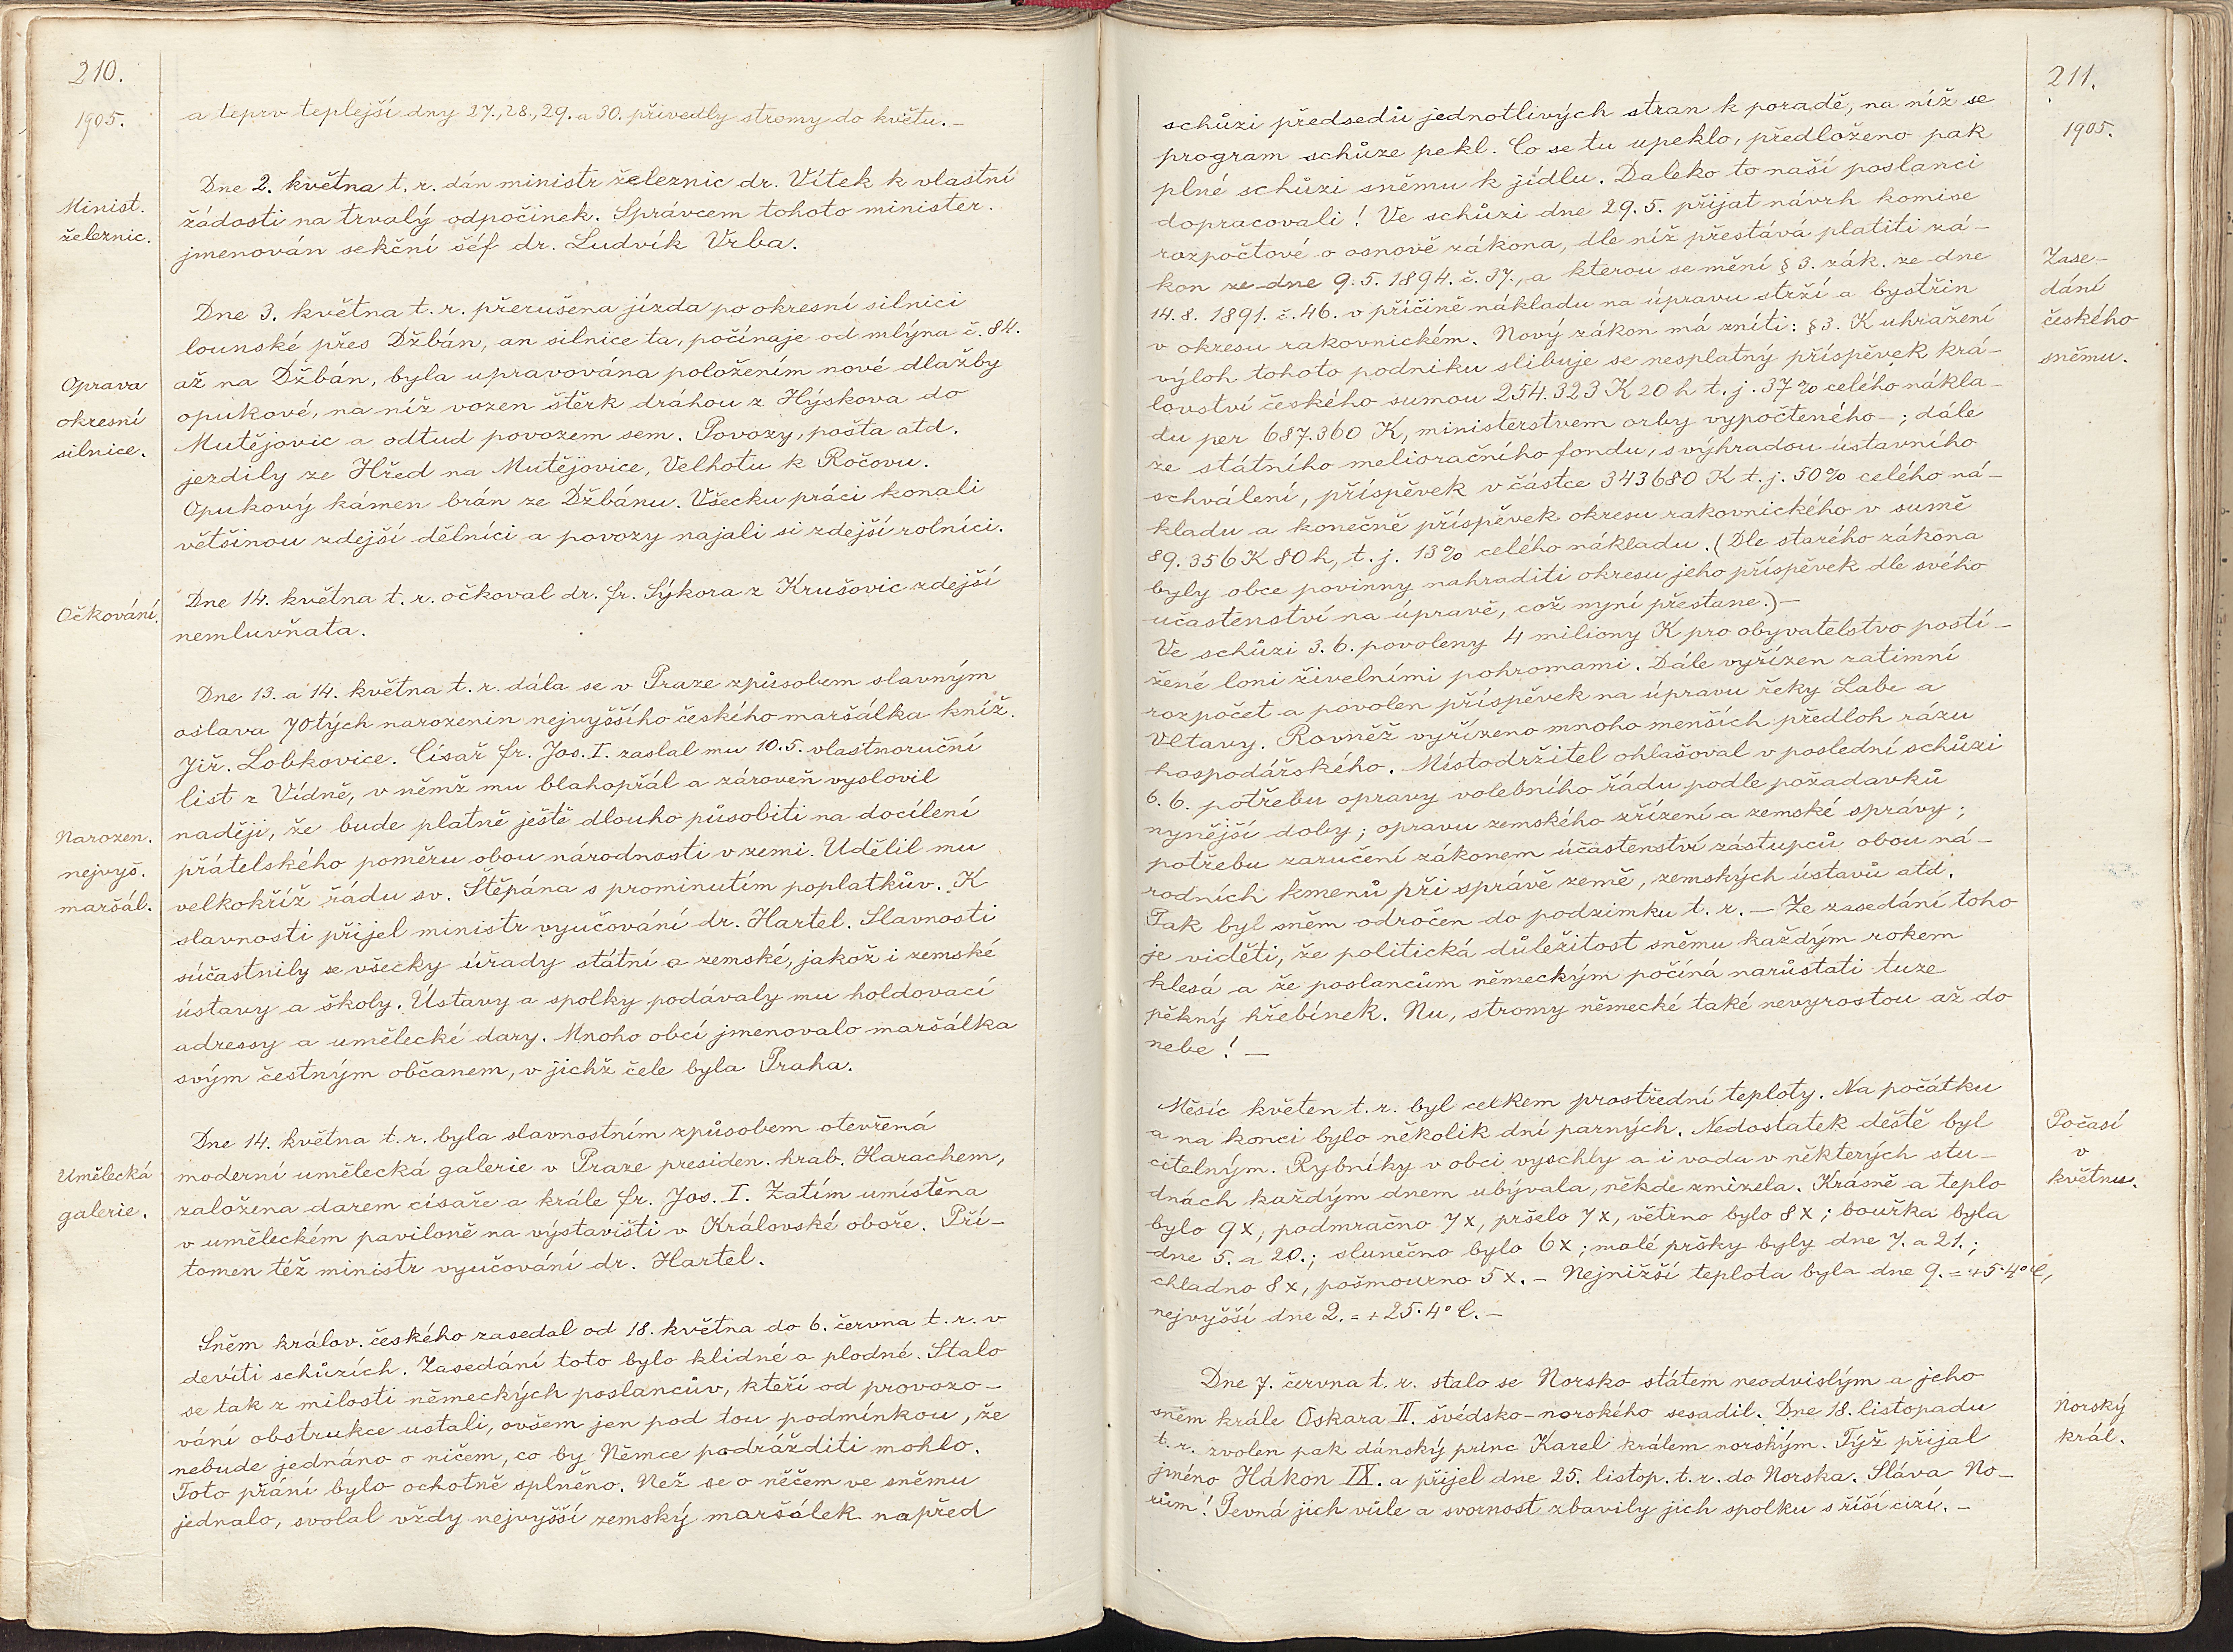 210.
1905.
a teprv teplejší dny 27., 28., 29. a 30. přivedly stromy do květu. –
Dne 2. května t. r. dán ministr železnic dr. Vítek k vlastní
Minist.
železnic.
žádosti na trvalý odpočinek. Správcem tohoto minister.
jmenován sekční šéf dr. Ludvík Vrba.
Dne 3. května t. r. přerušena jízda po okresní silnici
lounské přes Džbán, an silnice ta, počínaje od mlýna č. 84.
Oprava
okresní
silnice.
až na Džbán, byla upravována položením nové dlažby
opukové, na níž vozen štěrk dráhou z Hýskova do
Mutějovic a odtud povozem sem. Povozy, pošta atd.
jezdily ze Hřed na Mutějovice, Velhotu k Ročovu.
Opukový kámen brán ze Džbánu. Všecku práci konali
většinou zdejší dělníci a povozy najali si zdejší rolníci.
Očkování.
Dne 14. května t. r. očkoval dr. Fr. Sýkora z Krušovic zdejší
nemluvňata.
Dne 13. a 14. května t. r. dála se v Praze způsobem slavným
oslava 70tých narozenin nejvyššího českého maršálka kníž.
Jiř. Lobkovice. Císař Fr. Jos. I. zaslal mu 10. 5. vlastnoruční
list z Vídně, v němž mu blahopřál a zároveň vyslovil
Narozen.
nejvyš.
maršál.
naději, že bude platně ještě dlouho působiti na docílení
přátelského poměru obou národností v zemi. Udělil mu
velkokříž řádu sv. Štěpána s prominutím poplatkův. K
slavnosti přijel ministr vyučování dr. Hartel. Slavnosti
súčastnily se všecky úřady státní a zemské, jakož i zemské
ústavy a školy. Ústavy a spolky podávaly mu holdovací
adressy a umělecké dary. Mnoho obcí jmenovalo maršálka
svým čestným občanem, v jichž čele byla Praha.
Dne 14. května t. r. byla slavnostním způsobem otevřená
Umělecká
galerie.
moderní umělecká galerie v Praze presiden. hrab. Harachem,
založena darem císaře a krále Fr. Jos. I. Zatím umístěna
v uměleckém paviloně na výstavišti v Královské oboře. Pří-
tomen též ministr vyučování dr. Hartel.
Sněm králov. českého zasedal od 18. května do 6. června t. r. v
devíti schůzích. Zasedání toto bylo klidné a plodné. Stalo
se tak z milosti německých poslancův, kteří od provozo-
vání obstrukce ustali, ovšem jen pod tou podmínkou, že
nebude jednáno o ničem, co by Němce podrážditi mohlo.
Toto přání bylo ochotně splněno. Než se o něčem ve sněmu
jednalo, svolal vždy nejvyšší zemský maršálek napřed
211.
1905.
schůzi předsedů jednotlivých stran k poradě, na níž se
program schůze pekl. Co se tu upeklo, předloženo pak
plné schůzi sněmu k jídlu. Daleko to naší poslanci
dopracovali! Ve schůzi dne 29. 5. přijat návrh komise
rozpočtové o osnově zákona, dle níž přestává platiti zá-
Zase-
dání
českého
sněmu.
kon ze dne 9. 5. 1894. č. 37., a kterou se mění § 3. zák. ze dne
14. 8. 1891. č. 46. v příčině nákladu na úpravu strží a bystřin
v okresu rakovnickém. Nový zákon má zníti: § 3. K uhražení
výloh tohoto podniku slibuje se nesplatný příspěvek krá-
lovství českého sumou 254.323 K 20 h t. j. 37% celého nákla-
du per 687.360 K, ministerstvem orby vypočteného –; dále
ze státního melioračního fondu, s výhradou ústavního
schválení, příspěvek v částce 343680 K t. j. 50% celého ná-
kladu a konečně příspěvek okresu rakovnického v sumě
89.356 K 80 h, t. j. 13% celého nákladu. (Dle starého zákona
byly obce povinny nahraditi okresu jeho příspěvek dle svého
účastenství na úpravě, což nyní přestane.) –
Ve schůzi 3. 6. povoleny 4 miliony K pro obyvatelstvo posti-
žené loni živelními pohromami. Dále vyřízen zatimní
rozpočet a povolen příspěvek na úpravu řeky Labe a
Vltavy. Rovněž vyřízeno mnoho menších předloh rázu
hospodářského. Místodržitel ohlašoval v poslední schůzi
6. 6. potřebu opravy volebního řádu podle požadavků
nynější doby; opravu zemského zřízení a zemské správy;
potřebu zaručení zákonem účastenství zástupců obou ná-
rodních kmenů při správě země, zemských ústavů atd.
Tak byl sněm odročen do podzimku t. r. – Ze zasedání toho
je viděti, že politická důležitost sněmu každým rokem
klesá a že poslancům německým počíná narůstati tuze
pěkný hřebínek. Nu, stromy německé také nevyrostou až do
nebe! –
Měsíc květen t. r. byl celkem prostřední teploty. Na počátku
Počasí
v
květnu.
a na konci bylo několik dní parných. Nedostatek deště byl
citelným. Rybníky v obci vyschly a i voda v některých stu-
dnách každým dnem ubývala, někde zmizela. Krásně a teplo
bylo 9 x, podmračno 7 x, pršelo 7 x, větrno bylo 8 x; bouřka byla
dne 5. a 20.; slunečno bylo 6 x; malé pršky byly dne 7. a 21.;
chladno 8 x, pošmourno 5 x. – Nejnižší teplota byla dne 9. = +5·4° C,
nejvyšší dne 2. = +25·4° C. –
Dne 7. června t. r. stalo se Norsko státem neodvislým a jeho
Norský
král.
sněm krále Oskara II. švédsko-norského sesadil. Dne 18. listopadu
t. r. zvolen pak dánský princ Karel králem norským. Týž přijal
jméno Hákon IX. a přijel dne 25. listop. t. r. do Norska. Sláva No-
rům! Pevná jich vůle a svornost zbavily jich spolku s říší cizí. –